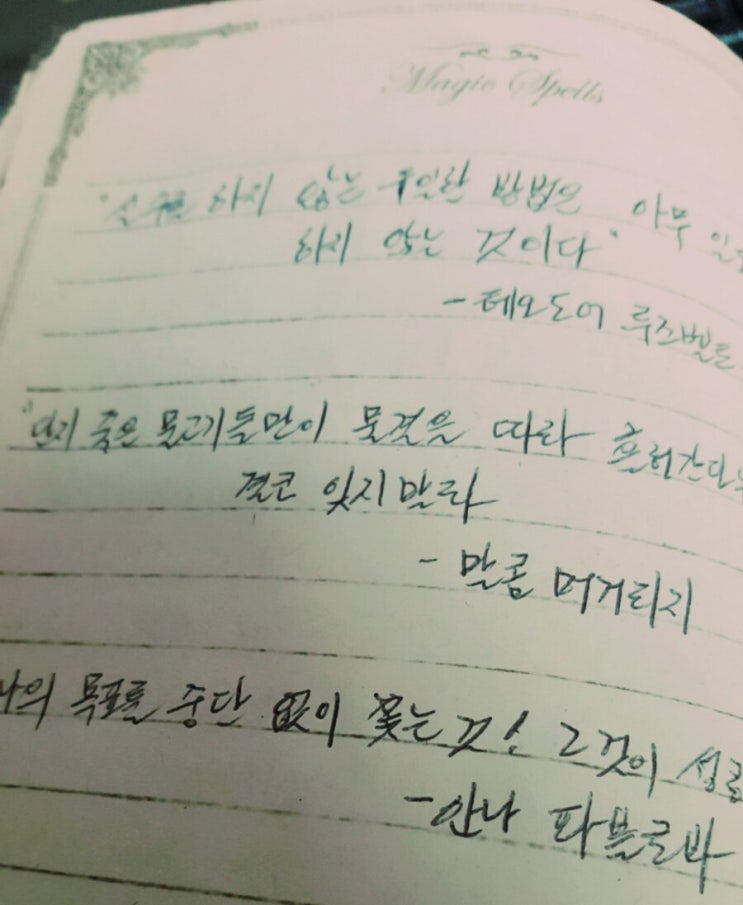 Magic Spells
하지 않는 유일한 방법은 아무
하지 않는 것이다"
- 테오도어 루즈벨트
"단지 죽은 물고기들만이 물결을 따라 흘러간다
결코 잊지말라
- 말콤 머거리지
나의 목표를 중단 없이 쫓는것! 그것이
- 안나 파블로바